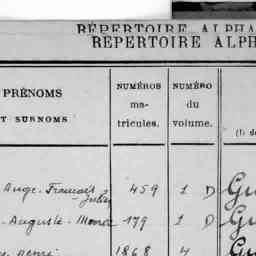 RÉPERTOIRE ALPHA
RÉPERTOIRE ALPH
PRÉNOMS
T SURNOMS
NUMÉROS
ma-
tricules.
NUMÉRO
du
volume.
Ange-Français 459 1 D
Jules
- Auguste- 179 1 D
henri 1868 4